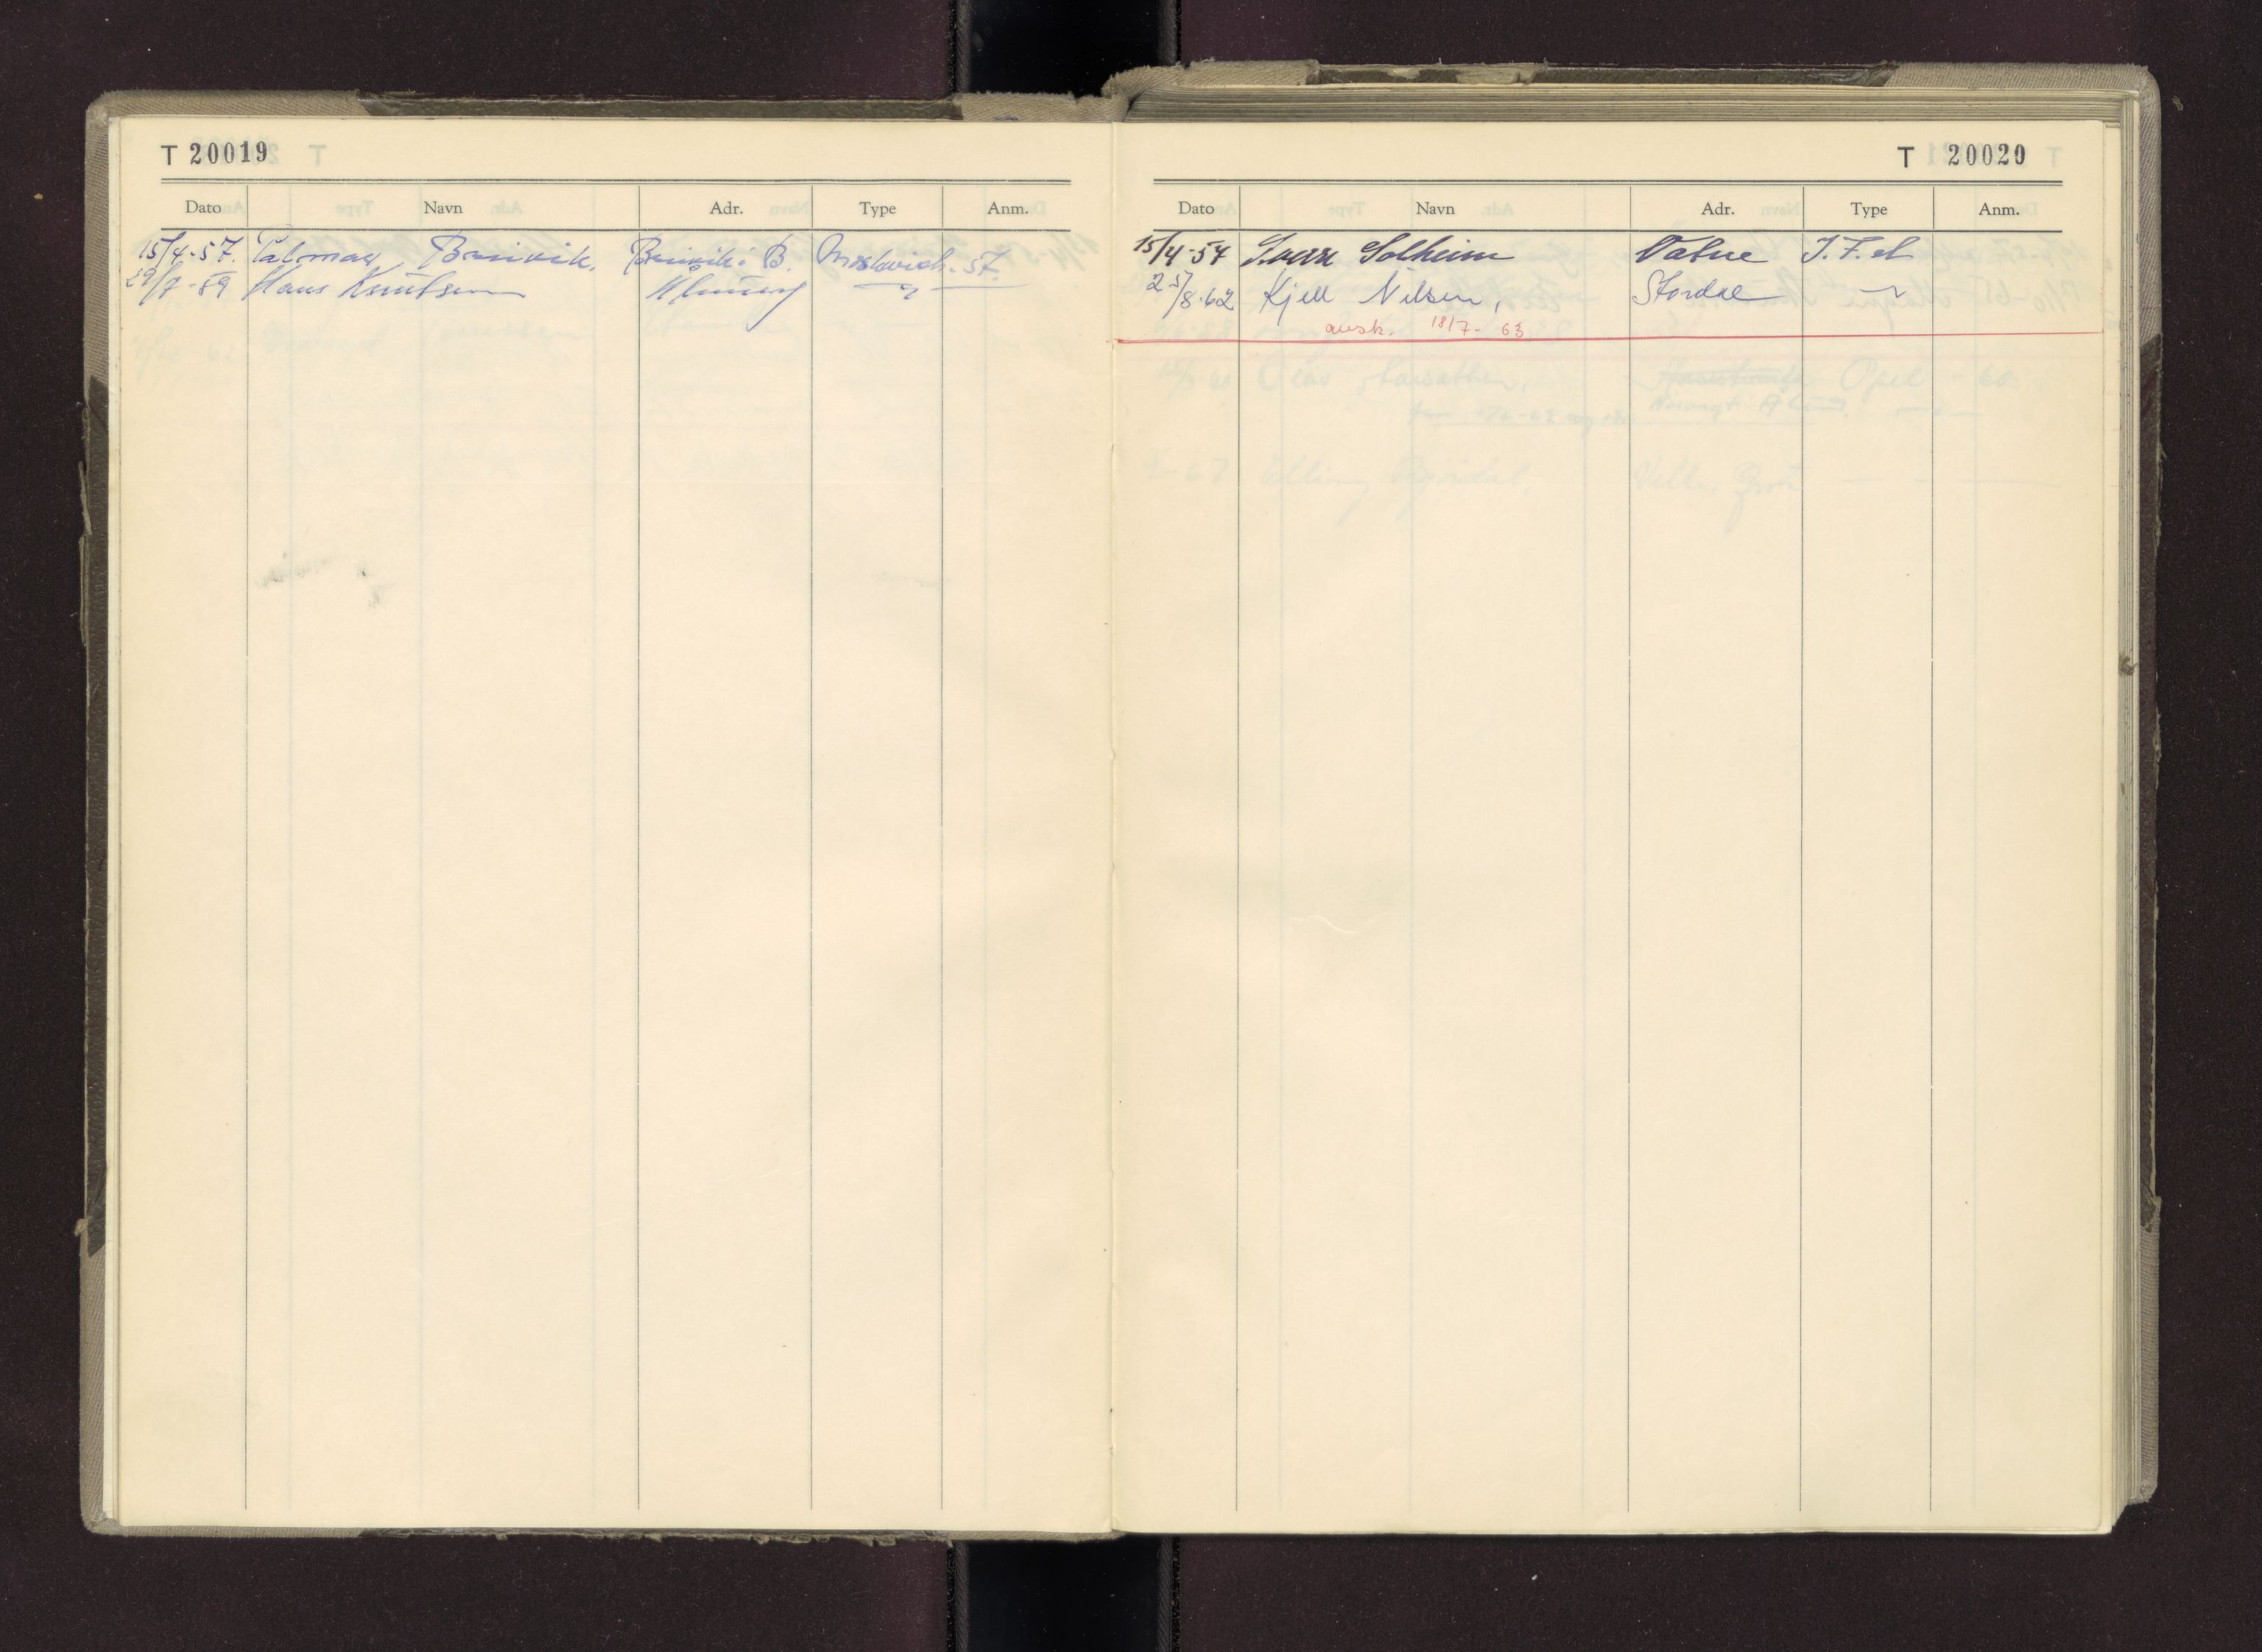 T 20019
Dato Navn Adr. Type Anm.
15/4-57. Palmar Brüvik. Brüvik i B. Moskvich. 57.
29/7-59 Hans Knutsen
T 20020
Dato Navn Adr. Type Anm.
15/4-57 Sverre Solheim Vatne I.F. el
25/8-62 Kjell Nilsen, Stordal
avsk. 18/7-63